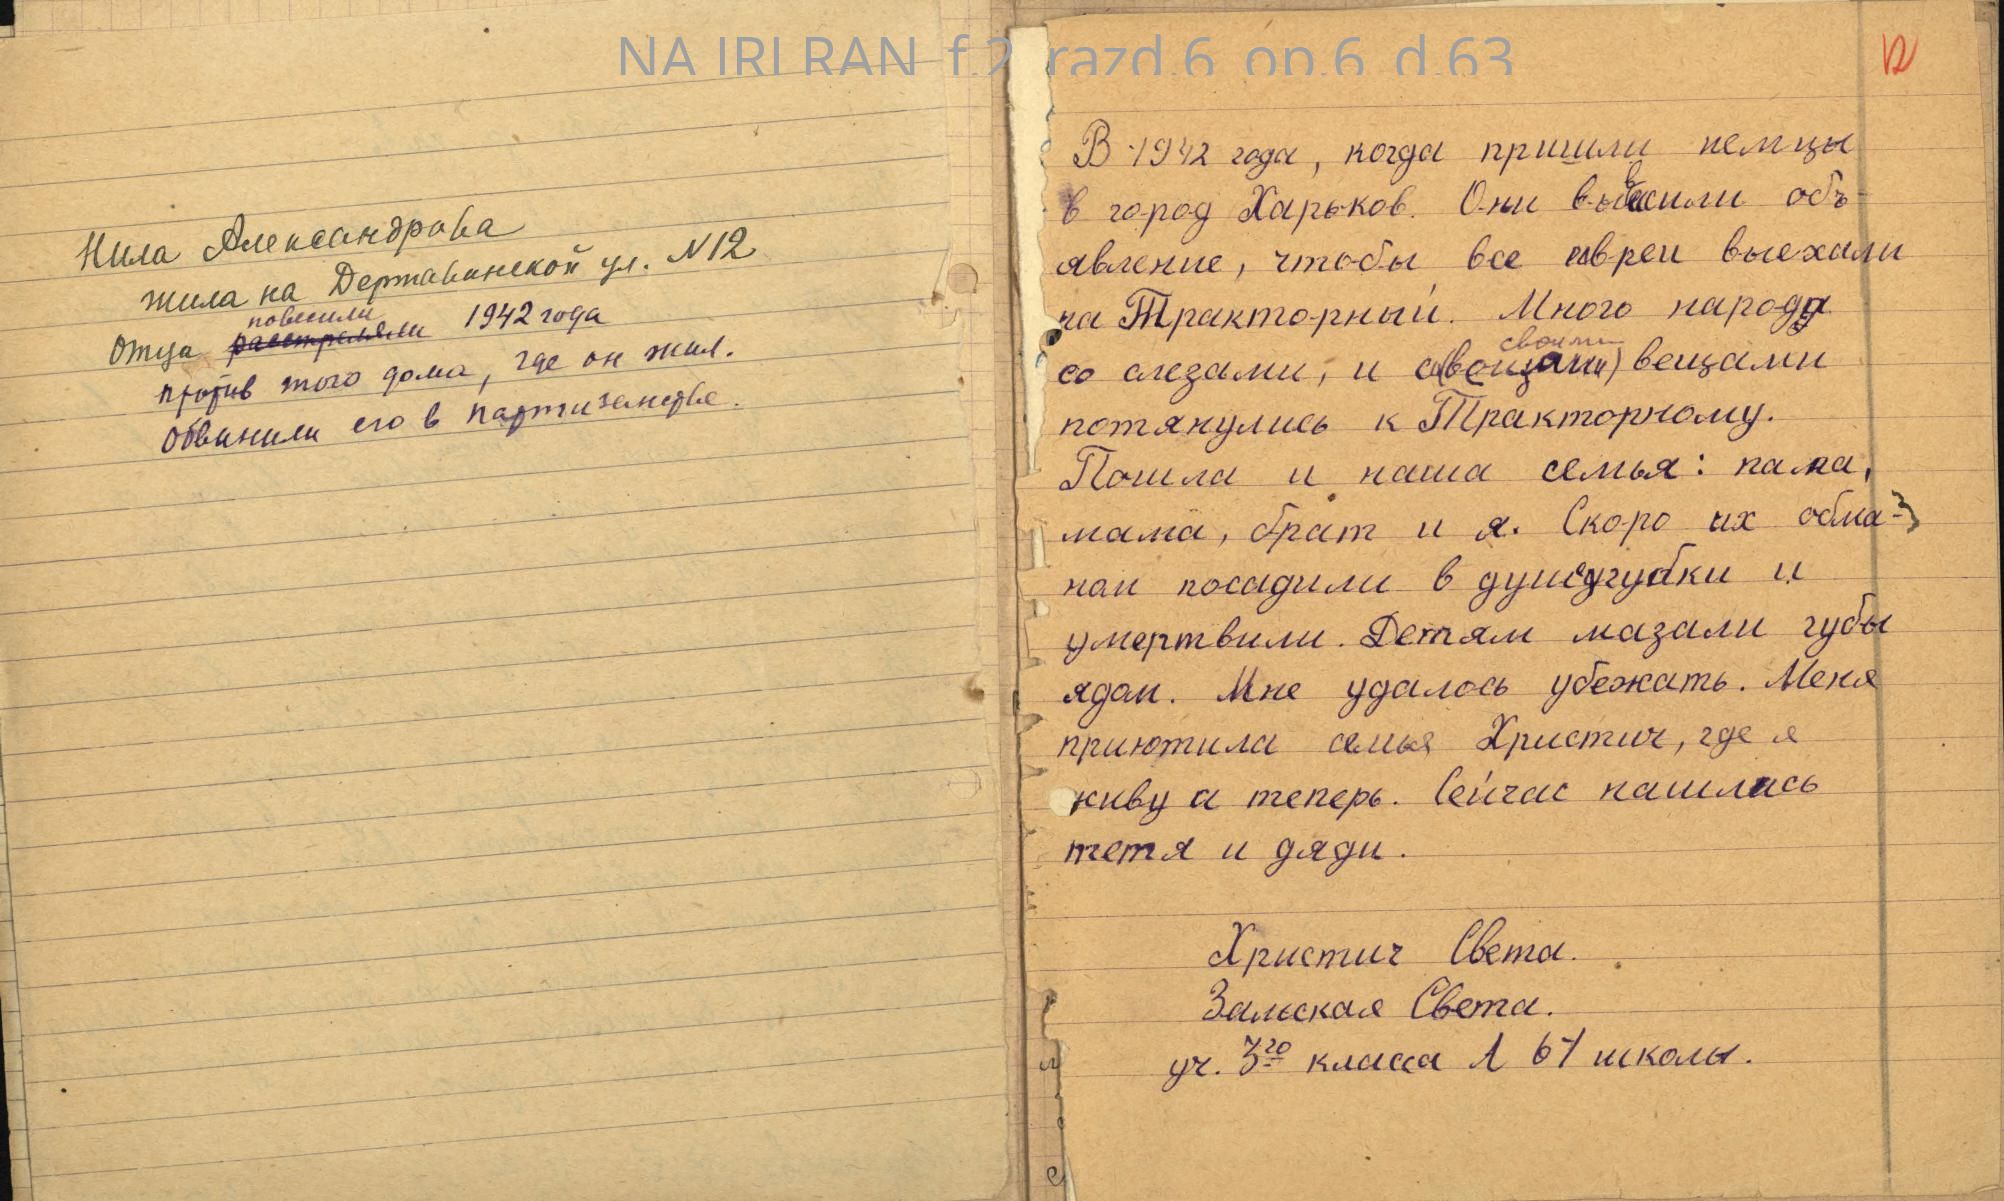 NA IRI RAN f.2 razd.6 op.6 d.63
Нила Александрова
жила на Державинской ул. N12
повесили
Отца расстреляли 1942 года
против того дома, где он жил.
Обвинили его в партизанстве.
12
В 1942 года, когда пришли немцы
в город Харьков. Они вывесили объ-
явление, чтобы все евреи выехали
на Тракторный. Много народу
своими
со слезами, и с вещами
потянулись к Тракторному.
Пошла и наша семья: папа,
мама, брат и я. Скоро их обма-
ном посадили в душегубки и
умертвили. Детям мазали губы
ядом. Мне удалось убежать. Меня
приютила семья Христич, где я
живу и теперь. Сейчас нашлись
тетя и дяди.
Христич Света.
Зальская Света.
уч. 3го класса 67 школы.